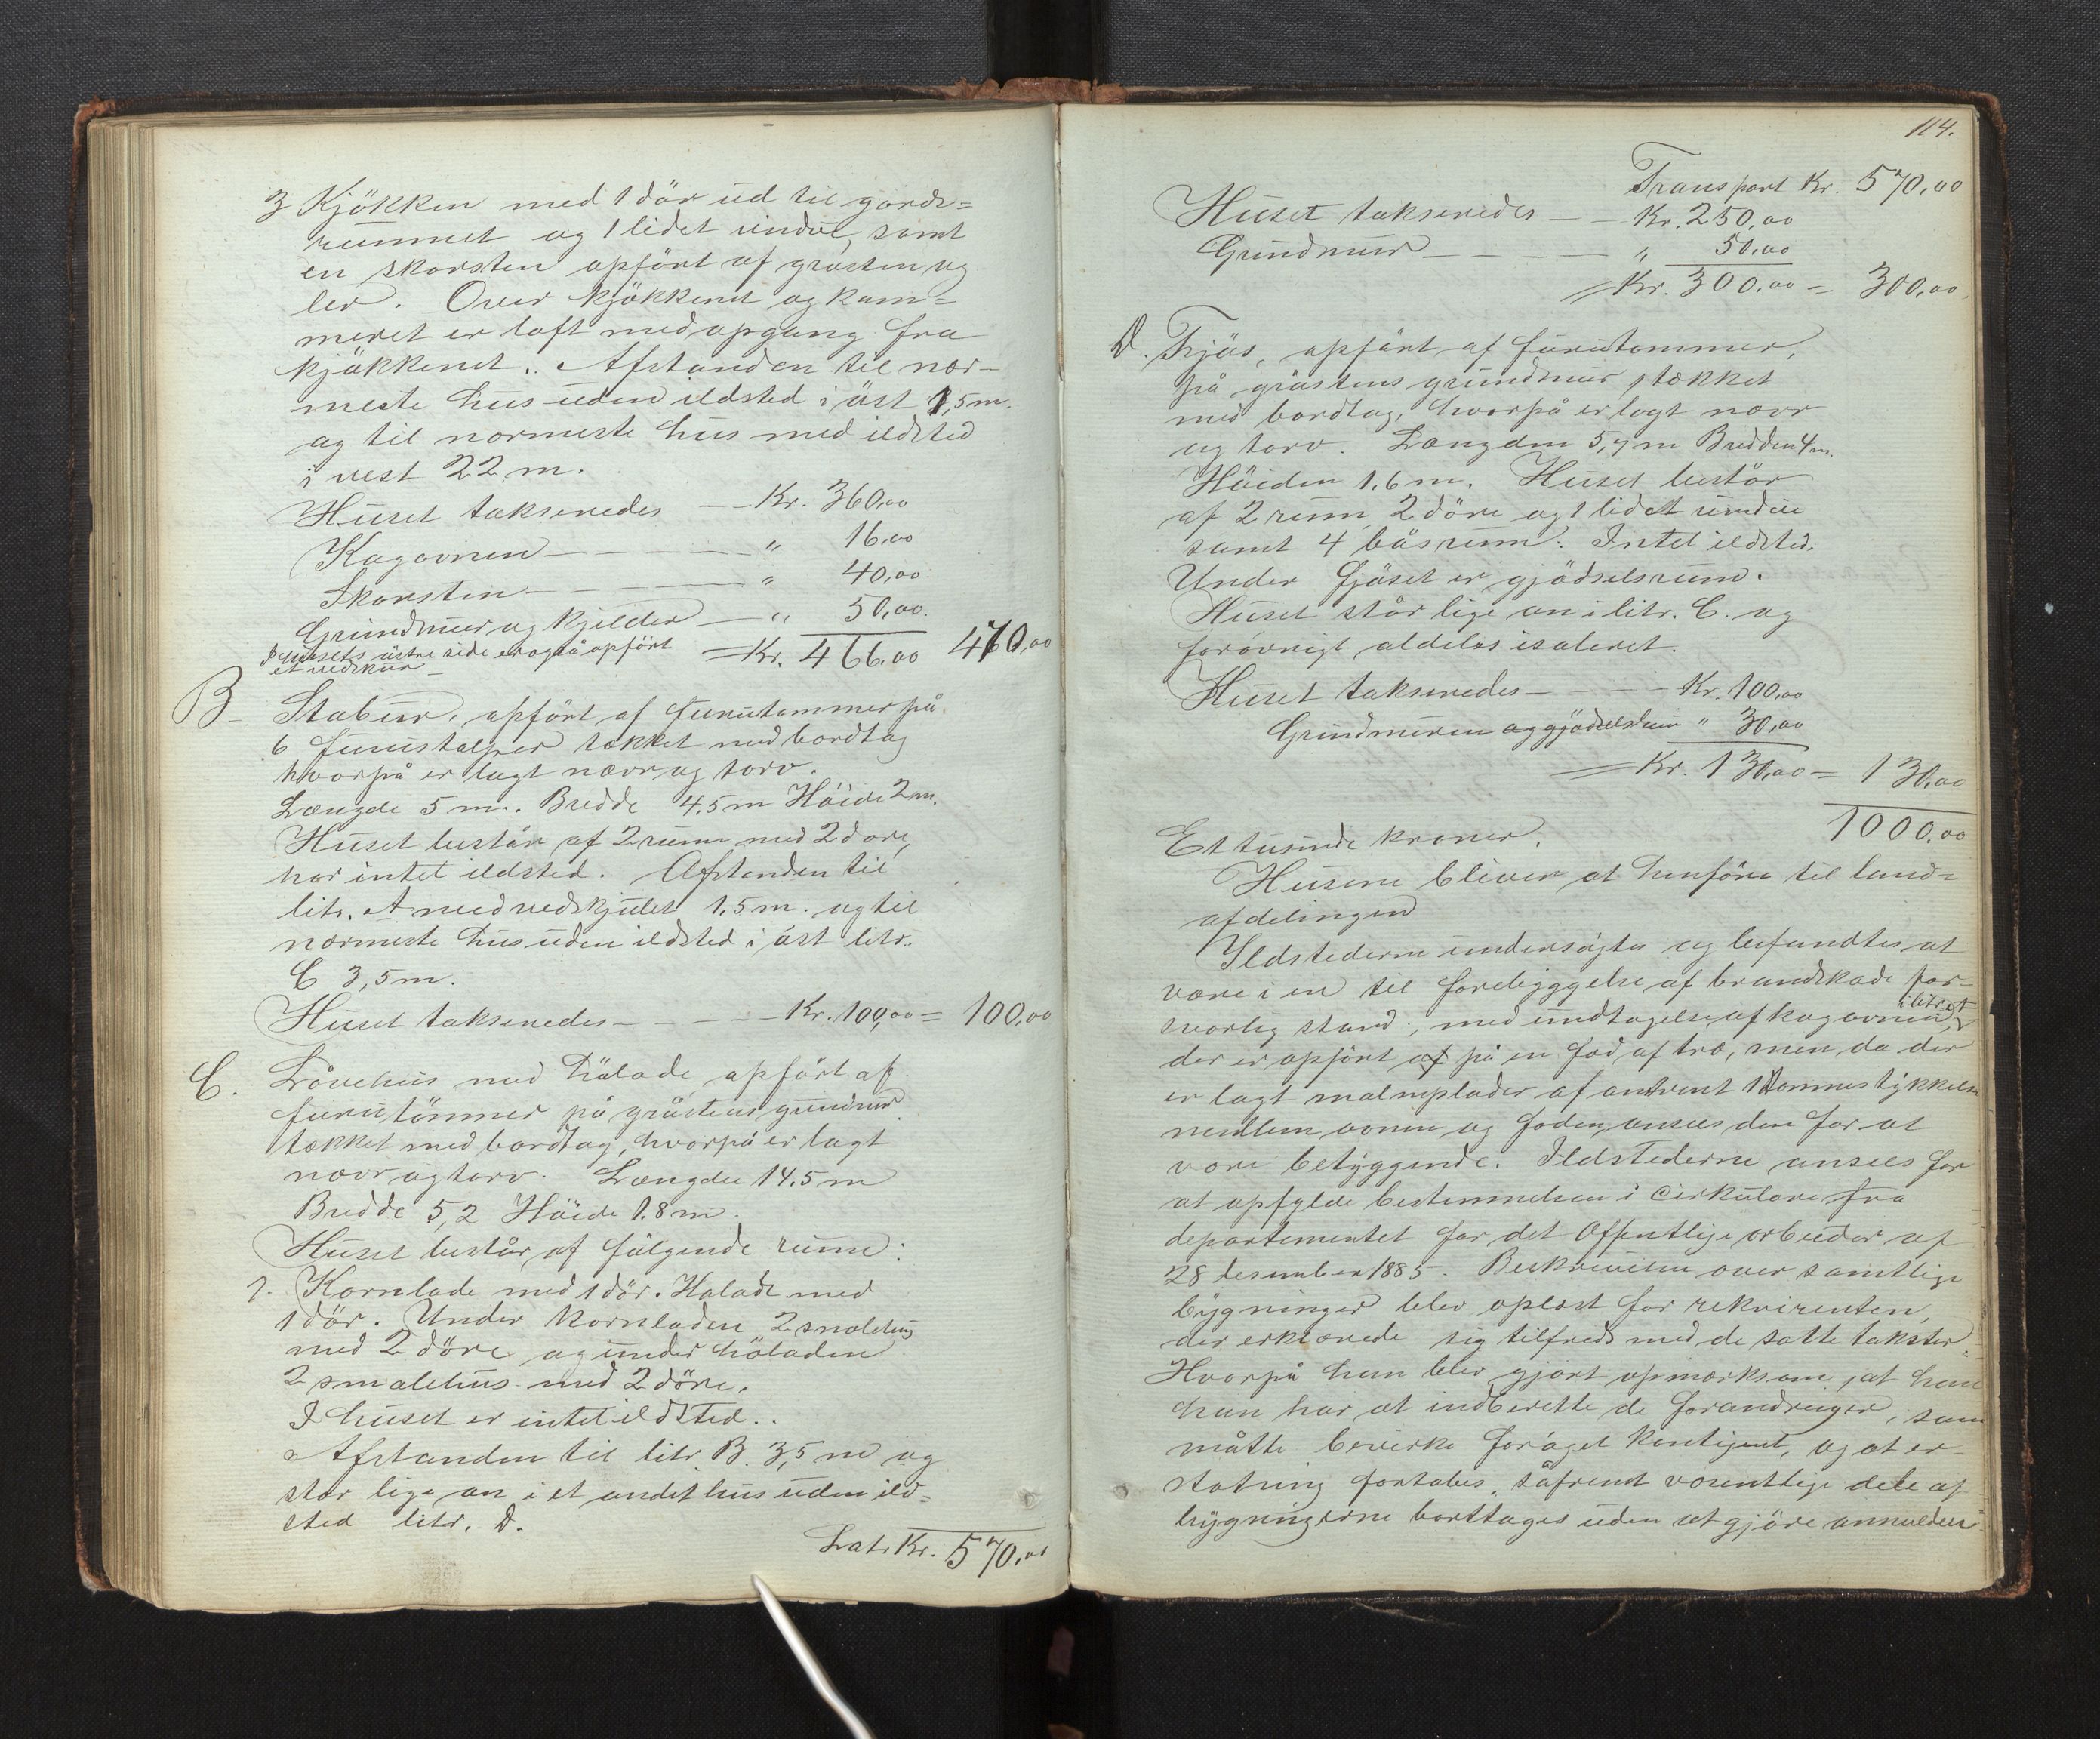 3 Kjökken med 1 dör ud til gords=
rummet og 1 lidet vindue, samt
en skorsten opfört af gråsten og
ler. Over kjökkenet og kam=
meret er loft med opgang fra
kjökkenet. Afstanden til nær-
meste hus uden ildsted i öst 1,5 m.
og til nærmeste hus med ildsted
i vest 22 m.
Huset takseredes — Kr. 360,00
Kagovnen — — — — „ 16,00
Skorsten — — — — „ 40,00
Grundmur og kjelder — „ 50,00.
I husets östre side er også opfört
et vedskur —
= Kr. 466,00 470,00
B — Stabur, opfört af furutömmer på
6 furustolper tækket med bordtag
hvorpå er lagt næver og torv.
Længde 5 m. Bredde 4,5 m Höide 2 m.
Huset består af 2 rum med 2 döre,
har intet ildsted. Afstanden til
litr. A med vedskjulet 1.5 m. og til
nærmeste hus uden ildsted i öst litr.
C 3,5 m.
Huset takseredes — — — Kr. 100,00 = 100,00
C. Låvehus med hölade, opfört af
furutömmer på gråstens grundmur
tækket med bordtag, hvorpå er lagt
næver og torv. Længde 14.5 m
Bredde 5,2 Höide 1.8 m.
Huset består af fölgende rum:
1. Kornlade med 1 dör. Hölade med
1 dör. Under kornladen 2 smalehus
med 2 döre og under höladen
2 smalehus med 2 döre.
I huset er intet ildsted.
Afstanden til litr. B. 3,5 m og
står lige an i et andet hus uden ild=
sted litr. D.
Latr Kr. 570,00
114.
Transport Kr. 570,00
Huset takseredes — — Kr. 250,00
Grundmur — — — — „ 50,00
= Kr. 300,00 = 300,00
D. Fjös, opfört af furutömmer,
på gråstens grundmur, tækket
med bordtag, hvorpå er lagt næver
og torv. Længden 5,7 m Bredden 4 m.
Höiden 1.6 m. Huset består
af 2 rum, 2 döre og 1 lidet vindue
samt 4 båsrum. Intet ildsted.
Under fjöset er gjödselsrum.
Huset står lige an i litr. C. og
forövrigt aldeles isoleret.
Huset takseredes — — — Kr. 100,00
Grundmuren og gjödselsrum „ 30,00
= Kr. 130,00 = 130,00
1000,00
Et tusinde kroner.
Husene bliver at henföre til land=
afdelingen
Ildstederne undersögtes og befandtes at
være i en til forebyggelse af brandskade for-
svarlig stand, med undtagelse af kagovnen i litr. A,
der er opfört af på en fod af træ, men da der
er lagt malmplader af omtrent 1 tommes tykkelse
mellem ovnen og foden, ansees den for at
være betryggende. Ildstederne ansees for
at opfylde bestemmelsen i Cirkulære fra
departementet for det Offentlige arbeider af
28 desember 1885. Beskrivelsen over samtlige
bygninger blev oplæst for rekvirenten,
der erklærede sig tilfreds med de satte takster.
Hvorpå han blev gjort opmærksom, at han
han har at indberette de forandringer, som
måtte bevirke foröget kontigent, og at er-
statning fortabes, såfremt væsentlige dele af
bygningerne borttages uden at gjöre anmeldelse